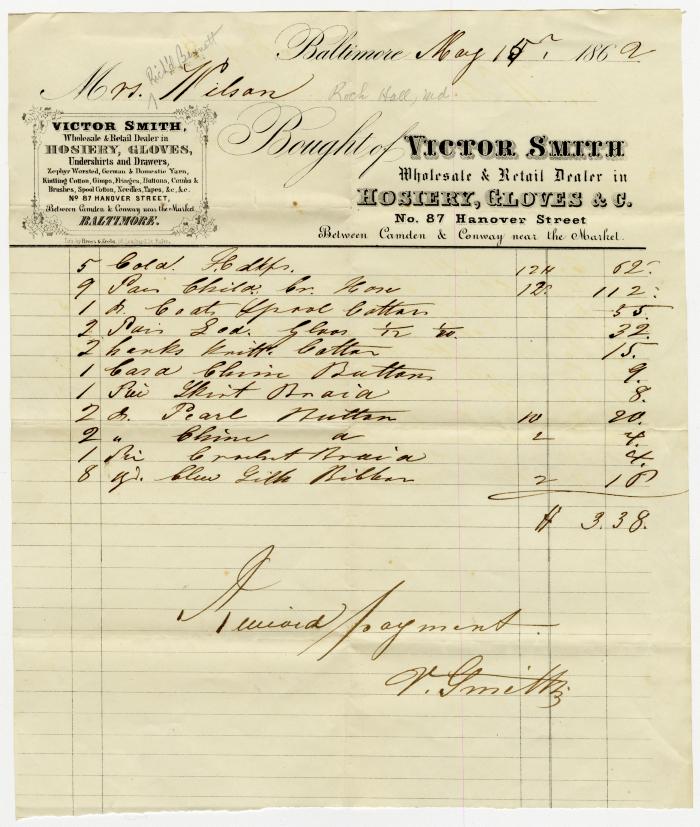 Baltimore May 15 1862
Rich'd Bennett
Mrs. Wilson
Rock Hall, Md.
VICTOR SMITH,
Wholesale & Retail Dealer in
HOSIERY, GLOVES,
Undershirts and Drawers,
Zephyr Worsted, German & Domestic Yarn,
Knitting Cotton, Gimps, Fringes, Buttons, Combs &
Brushes, Spool Cotton, Needles, Tapes, &c, &c.
No 87 HANOVER STREET,
Between Camden & Conway near the Market
BALTIMORE.
Bought of VICTOR SMITH
Wholesale & Retail Dealer in
HOSIERY, GLOVES & C.
No. 87 Hanover Street
Between Camden & Conway near the Market.
5 Cold. Hdkfs. 12½ 62
9 Pair Child. Hose 12 112
1 d. Coats Spool Cotton 55
2 Pair Gloves 32
2 hanks Knitt. Cotton 15
1 Card China Buttons 9
1 Pie Skirt Braid 8
2 d. Pearl Button 10 20
2 " China d 2 4
1 Pie Crochet Braid 4
8 yd. Silk Ribbon 2 18
$ 3.38
Received payment
V. Smith